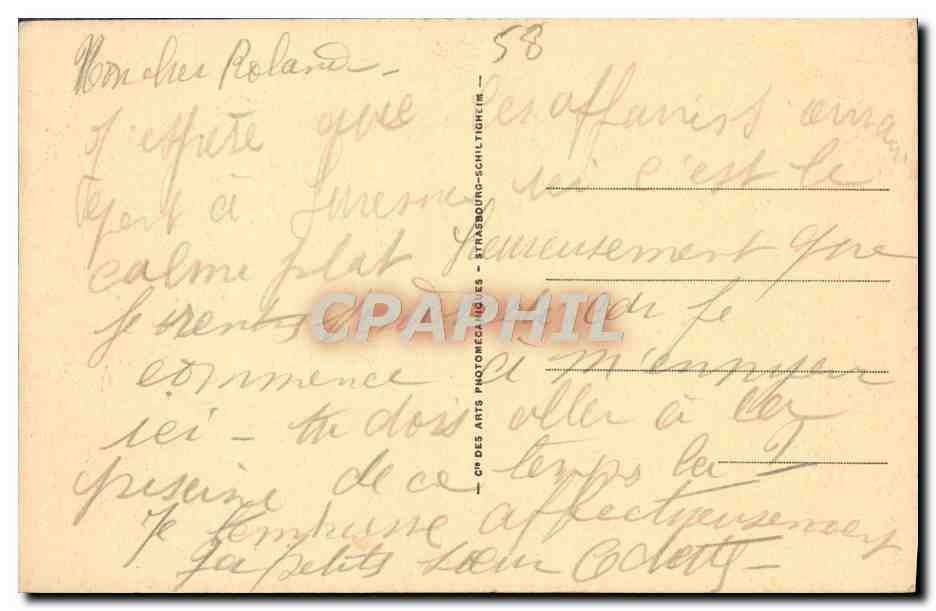 58
Mon cher Roland -
J'espère que les affaires
à Suresnes ici c'est le
calme plat heureusement que
je rentre car je
commence a m'ennuyer
ici - tu dois aller à la
piscine de ce temps la !
Je t'embrasse affectueusement
Ta petite sœur Odette -
— Cie DES ARTS PHOTOMÉCANIQUES - STRASBOURG-SCHILTIGHEIM. —
CPAPHIL